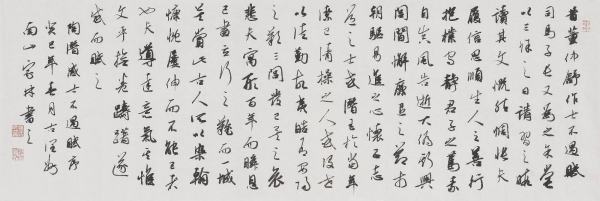 昔董仲舒作士不遇賦
司馬子長又為之余嘗
以三餘之日講習之暇
讀其文慨然惆悵夫
履信思順生人之善行
抱樸守靜君子之篤素
自真風告逝大偽斯興
閭閻懈廉退之節市
朝驅易進之心懷正志
道之士或潛玉於當年
潔己清操之人或沒世
以徒勤故夷皓有安歸
之歎三閭發已矣之哀
悲夫寓形百年而瞬息
已盡立行之難而一城
莫賞此古人所以染翰
慷慨屢伸而不能已者
也夫道達意氣其惟
文乎撫卷躊躇遂
感而賦之
陶潛感士不遇賦序
癸巳年月古
南山書之